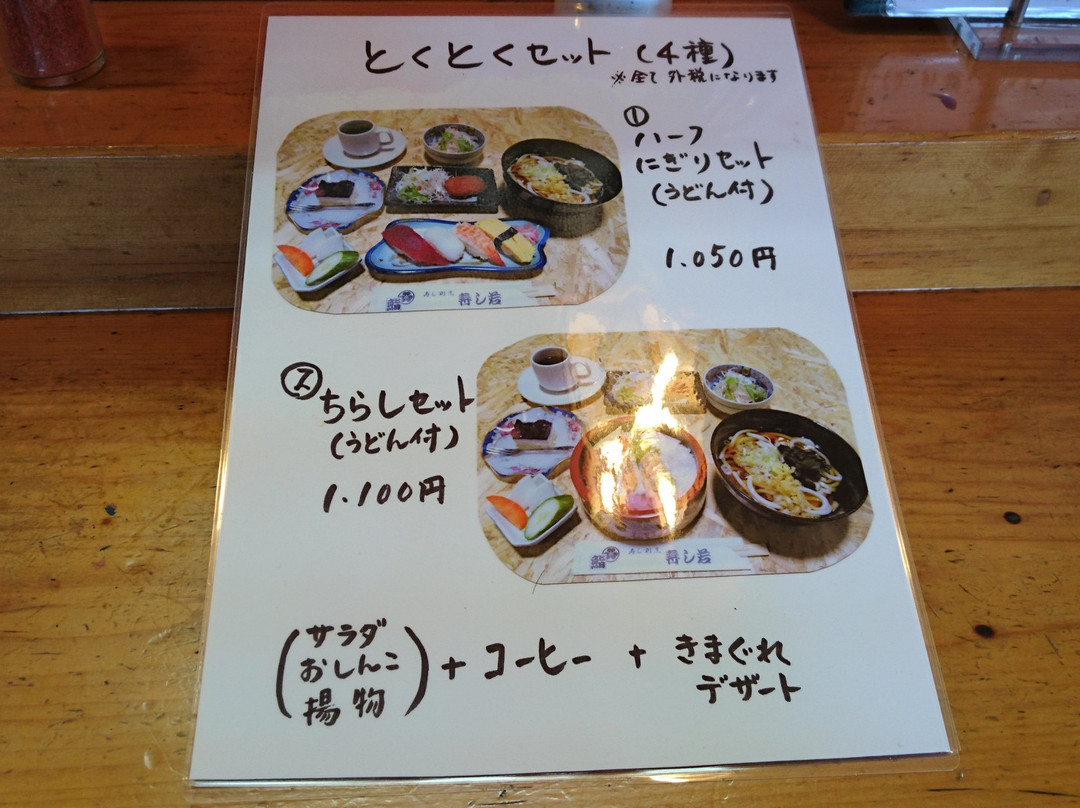 とくとくセット(4種)
※全て外税になります
①
ハーフ
にぎりセット
(うどん付)
1.050円
寿し割烹 寿し岩
②
ちらしセット
(うどん付)
1.100円
寿し割烹 寿し岩
(サラダ
おしんこ
揚物) + コーヒー + きまぐれ
デザート